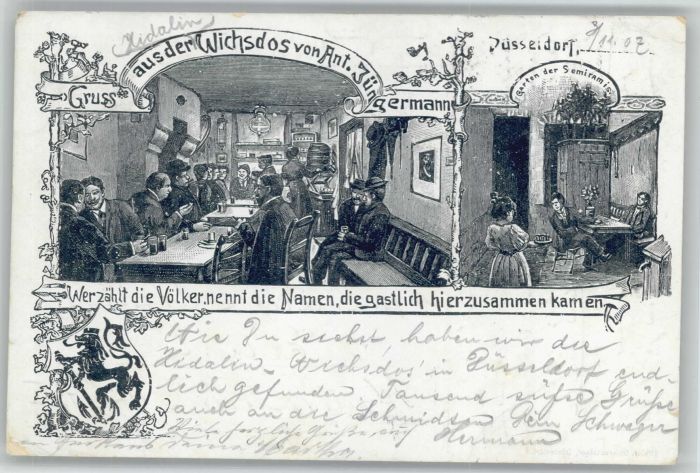 Nidalin
Gruss aus der Wichsdos von Ant. Jüngermann
Düsseldorf, 3/11.02
Garten der Semiramis
Wer zählt die Völker, nennt die Namen, die gastlich hier zusammen kamen
Wie Du siehst, haben wir die
Nidalin-Wichsdos in Düsseldorf end-
lich gefunden. Tausend süße Grüße
auch an die Schmidts Dein Schwager
Hermann
Viele herzliche Grüße auch